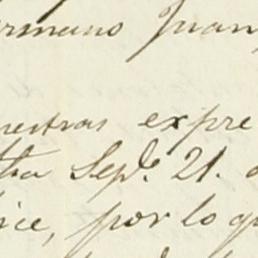 ermano Juan
nuestras expre
tha Sepe. 21. d
ice, por lo qu